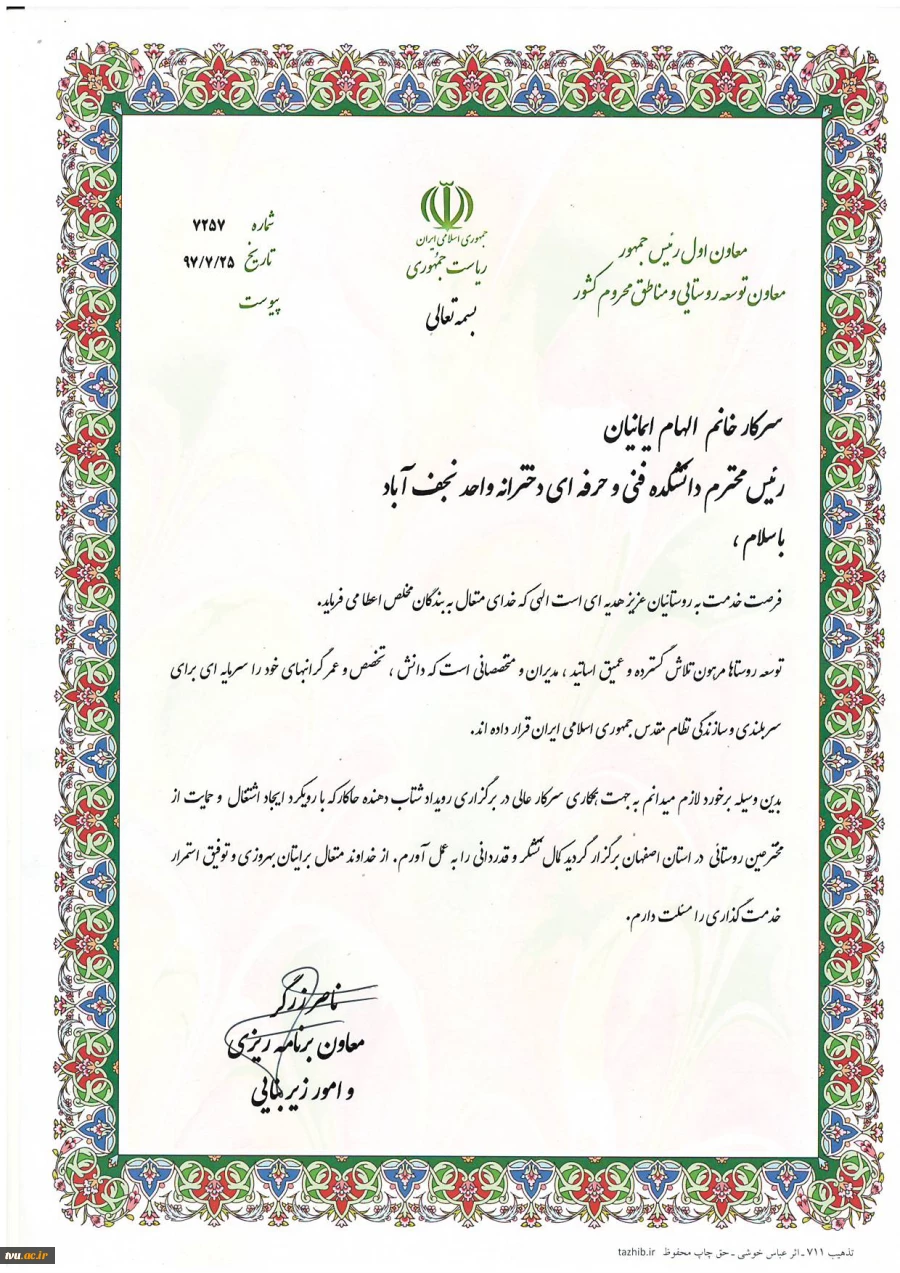 معاون اول رئیس جمهور
معاون توسعه روستایی و مناطق محروم کشور
جمهوری اسلامی ایران
ریاست جمهوری
بسمه تعالی
شماره ۷۲۵۷
تاریخ ۹۷/۷/۲۵
پیوست
سرکار خانم الهام ایمانیان
رئیس محترم دانشکده فنی و حرفه ای دخترانه واحد نجف آباد
باسلام ،
فرصت خدمت به روستائیان عزیز هدیه ای است الهی که خدای متعال به بندگان مخلص اعطا می فرماید.
توسعه روستاها مرهون تلاش گسترده و عمیق اساتید ، مدیران و متخصصانی است که دانش ، تخصص و عمر گرانبهای خود را سرمایه ای برای
سربلندی و سازندگی نظام مقدس جمهوری اسلامی ایران قرار داده اند.
بدین وسیله برخورد لازم میدانم به جهت همکاری سرکار عالی در برگزاری رویداد شتاب دهنده حاکارکه با رویکرد ایجاد اشتغال و حمایت از
مخترعین روستائی در استان اصفهان برگزار گردید کمال تشکر و قدردانی را به عمل آورم. از خداوند متعال برایتان بهروزی و توفیق استمرار
خدمت گذاری را مسئلت دارم.
ناصر زرگر
معاون برنامه ریزی
و امور زیر بنایی
تذهیب ۷۱۱ - اثر عباس خوشی - حق چاپ محفوظ tazhib.ir
tvu.ac.ir